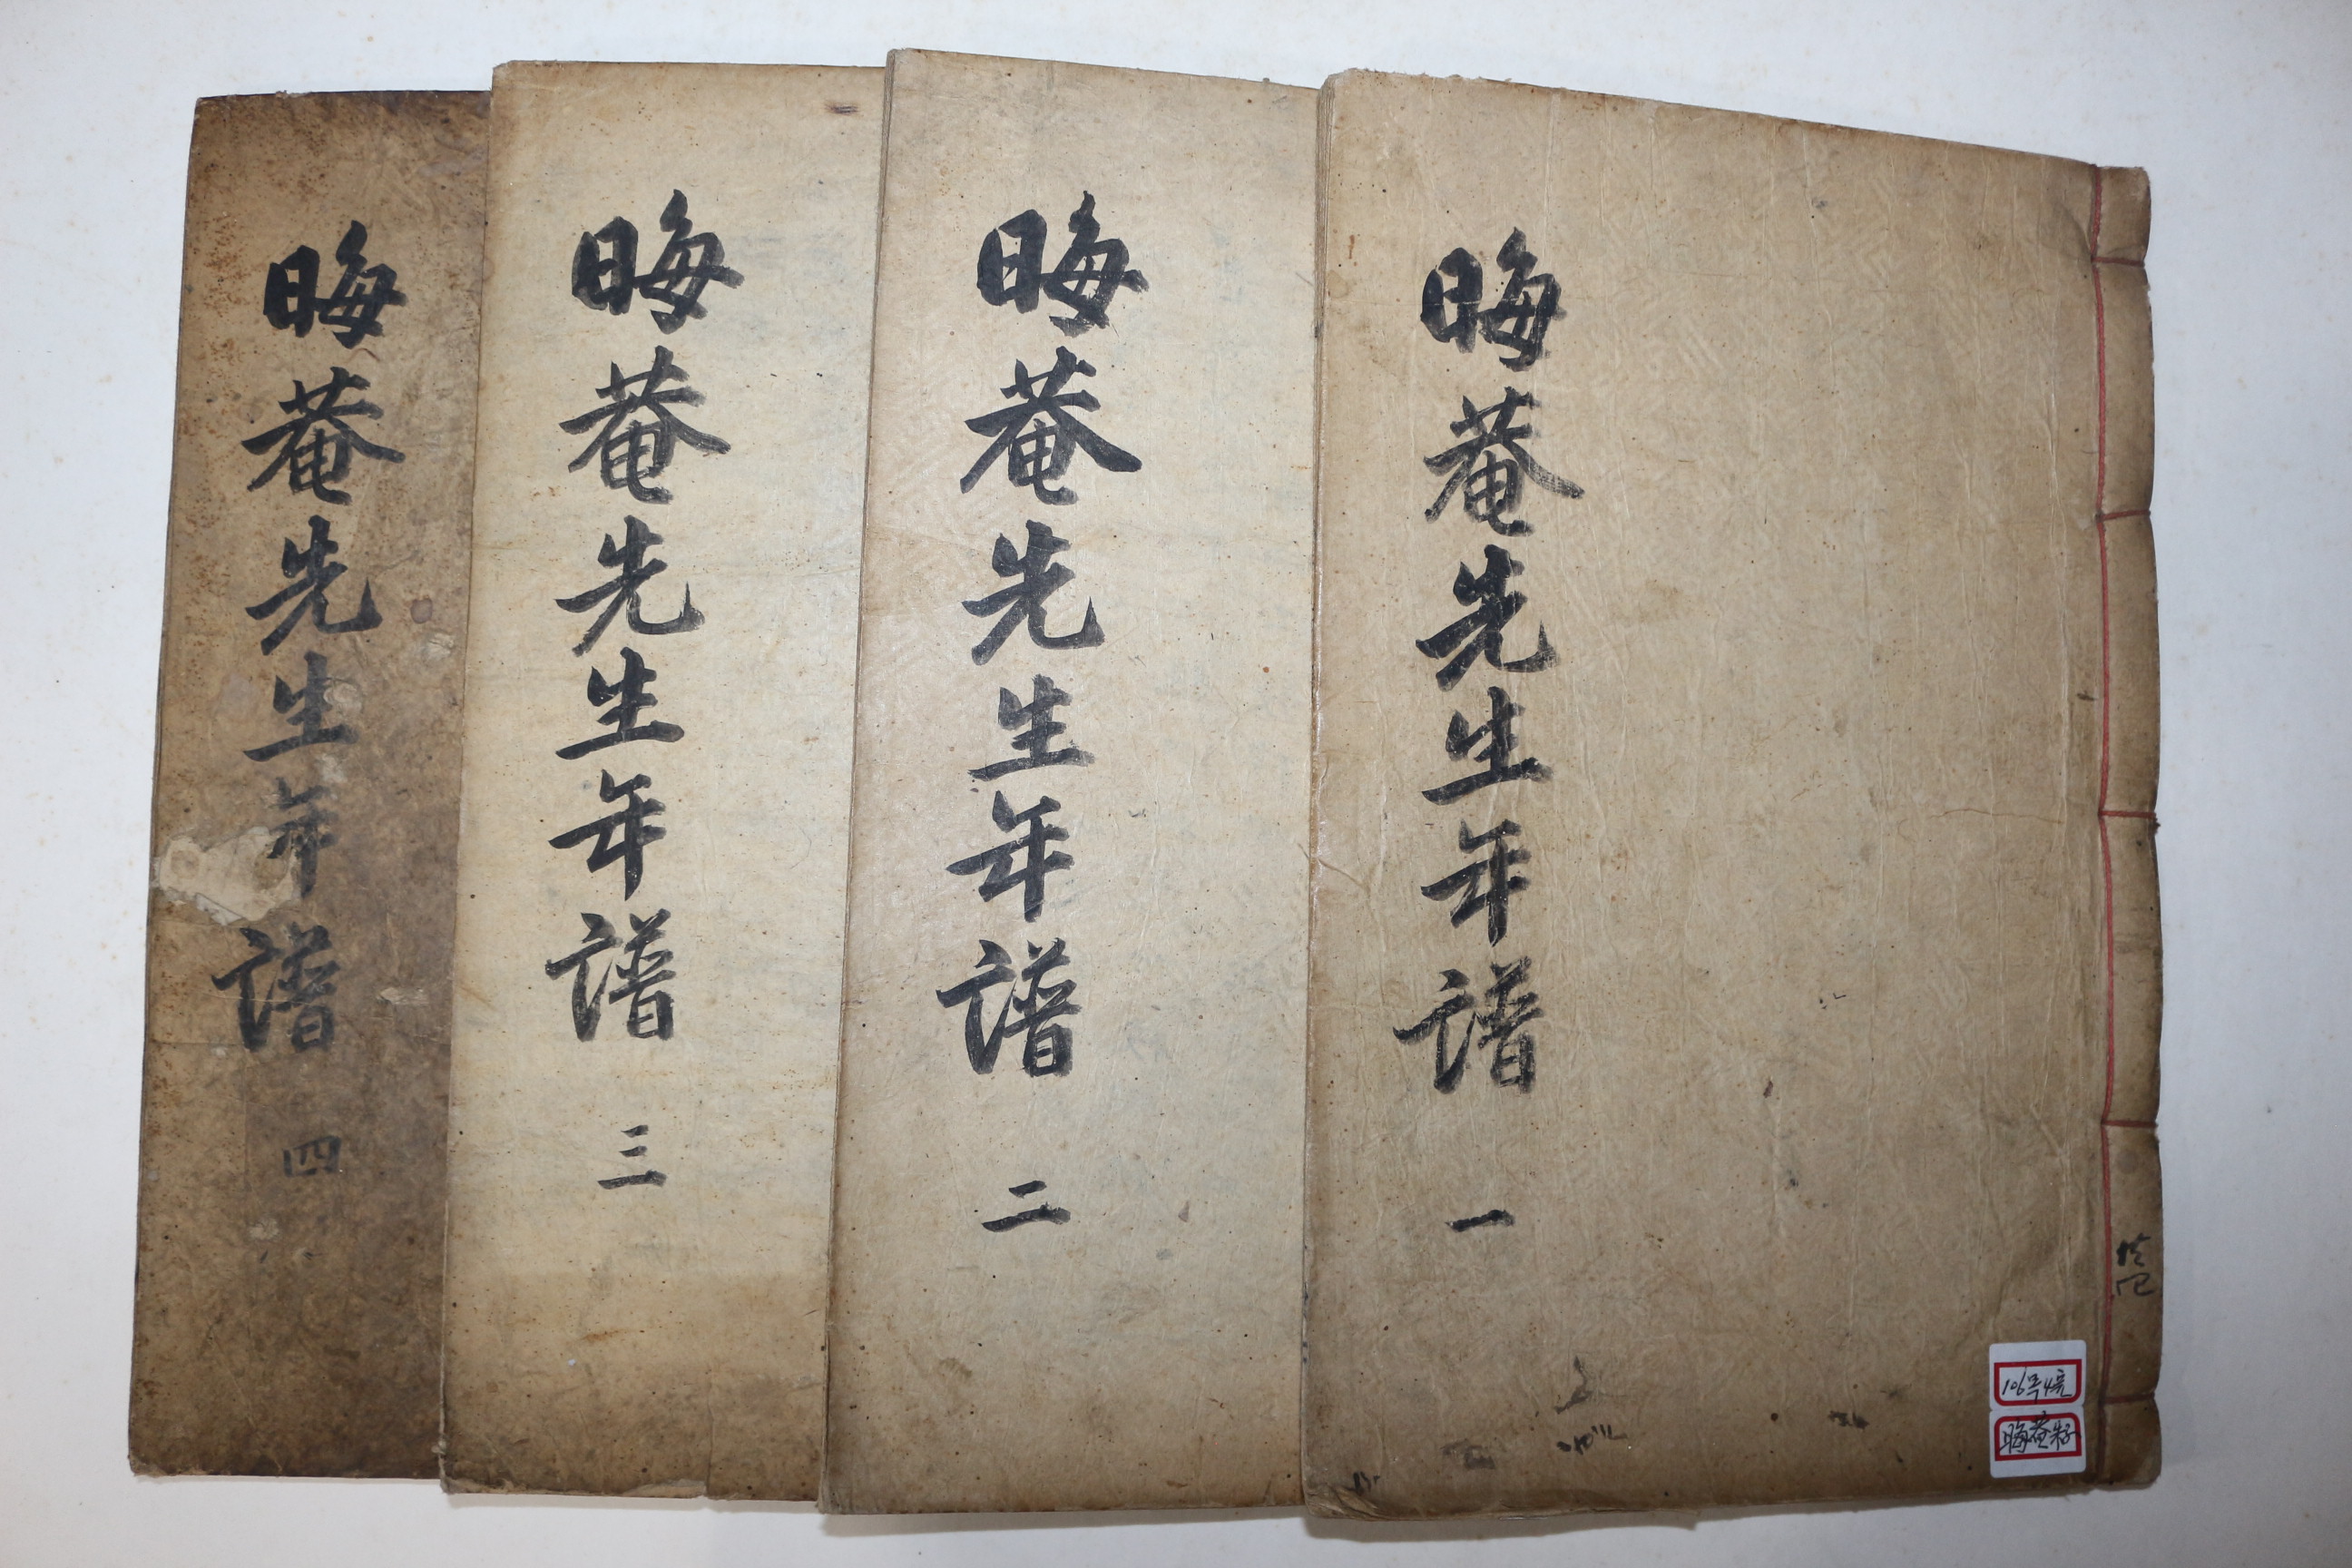 晦菴先生年譜 一
晦菴先生年譜 二
晦菴先生年譜 三
晦菴先生年譜 四
晦菴朱子